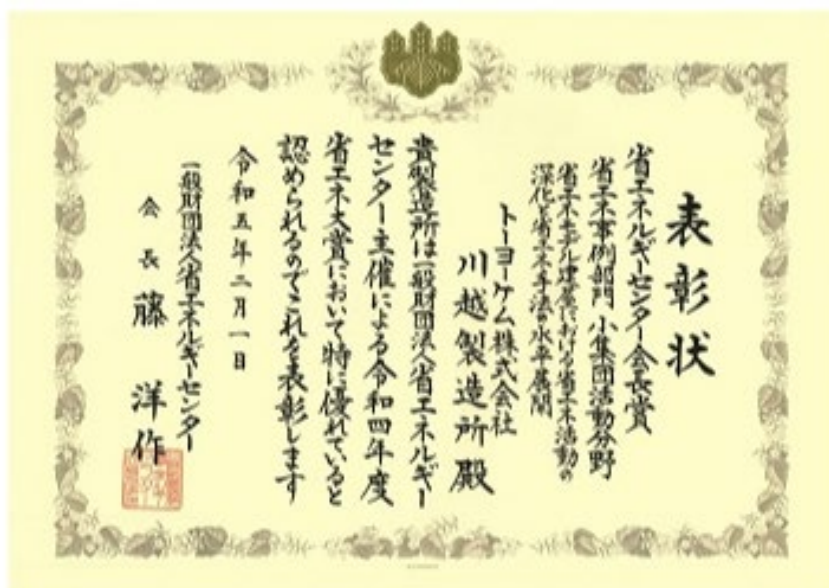 表彰状
省エネルギーセンター会長賞
省エネ事例部門 小集団活動分野
省エネモデル建屋における省エネ活動の
深化と省エネ手法の水平展開
トーヨーケム株式会社
川越製造所殿
貴製造所は一般財団法人省エネルギー
センター主催による令和四年度
省エネ大賞において特に優れていると
認められるのでこれを表彰します
令和五年二月一日
一般財団法人省エネルギーセンター
会長 藤 洋作